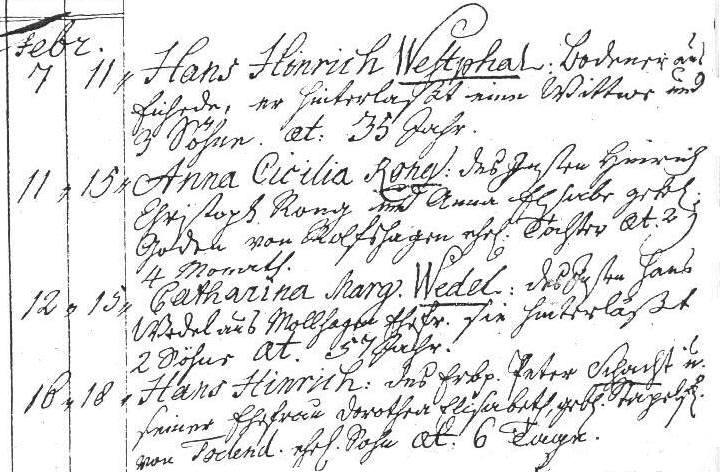 Febr.
7 11 Hans Hinrich Westphal: Bodener aus
Eichede, er hinterlaßt eine Wittwe und
3 Söhne. at: 35 Jahr.
11 15 Anna Cicilia Rong: des Insten Hinrich
Christoph Rong und Anna Elsabe geb:
Goden von Rolfshagen ehel. Tochter at. 2 J
4 Monath.
12 15 Catharina Marg. Wedel: des Insten Hans
Wedel aus Mollhagen Ehefr. sie hinterläßt
2 Söhne at. 57 Jahr.
16 18 Hans Hinrich: des Erbp. Peter Schacht u.
seiner Ehefrau Dorothea Elisabeth gebh. Stapelf.
von Todend. ehel. Sohn at: 6 Tage.